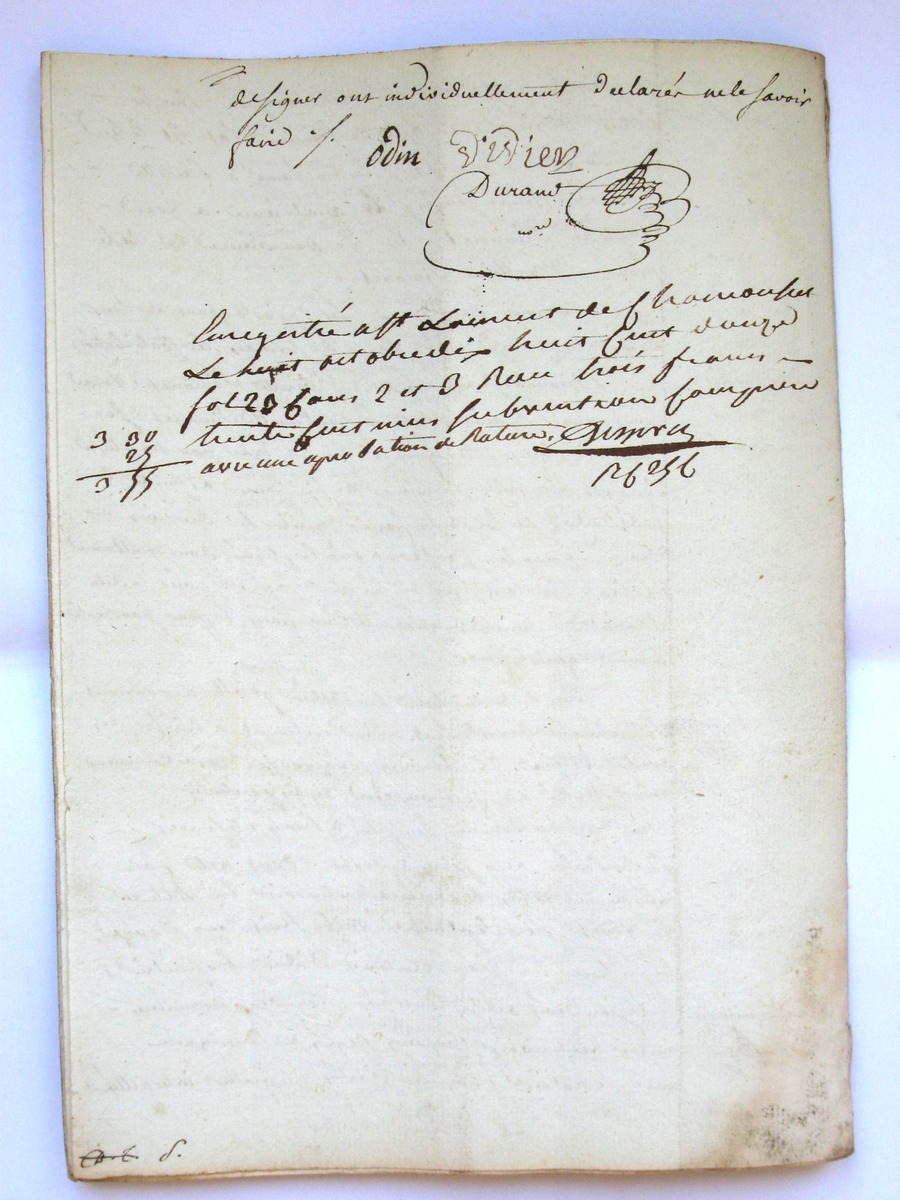 de signer ont individuellement declarés ne le savoir
faire ./.
odin Didier
Durand
nore
Enregistré a St Laurent de Chamousset
Le huit octobre dix huit Cent douze
fol 23 Case 2 et 3 Recu trois francs
trente Cent mins subvention Comprise
3 30
25
avec une aprobation de Rature.
3 55
126256
8.